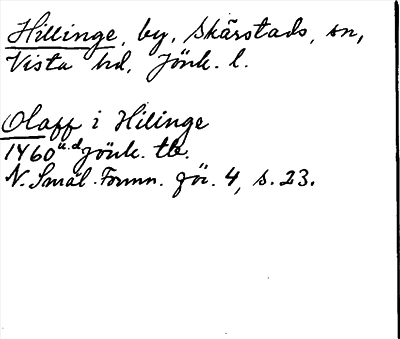 Hillinge, by, Skärstads, sn,
Vista hd, Jönk. l.
Olaff i Hilinge
1460 u.d Jönk. tb.
N. Smål. Fornm. för. 4, s. 23.